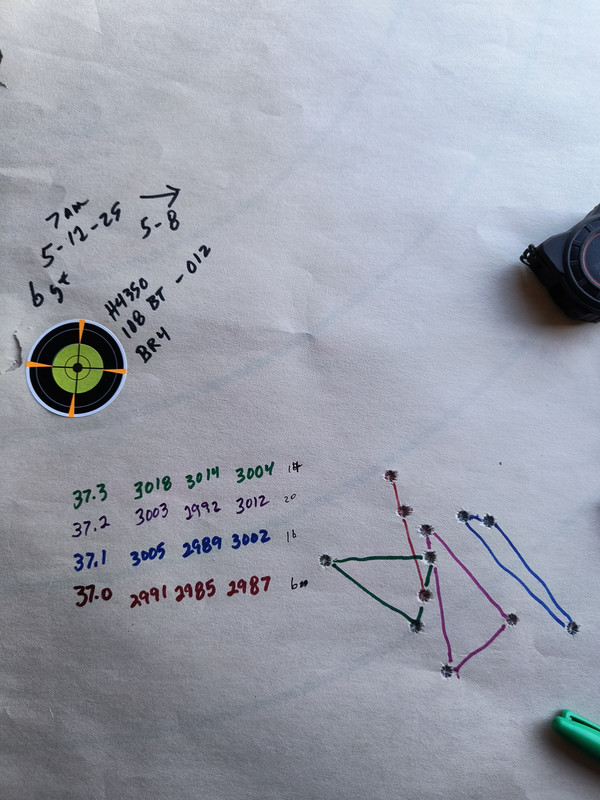 7 AM
5-12-25
5-8
6 gt
H4350
108 BT - 012
BR4
37.3 3018 3014 3004 14
37.2 3003 2992 3012 20
37.1 3005 2989 3002 16
37.0 2991 2985 2987 6